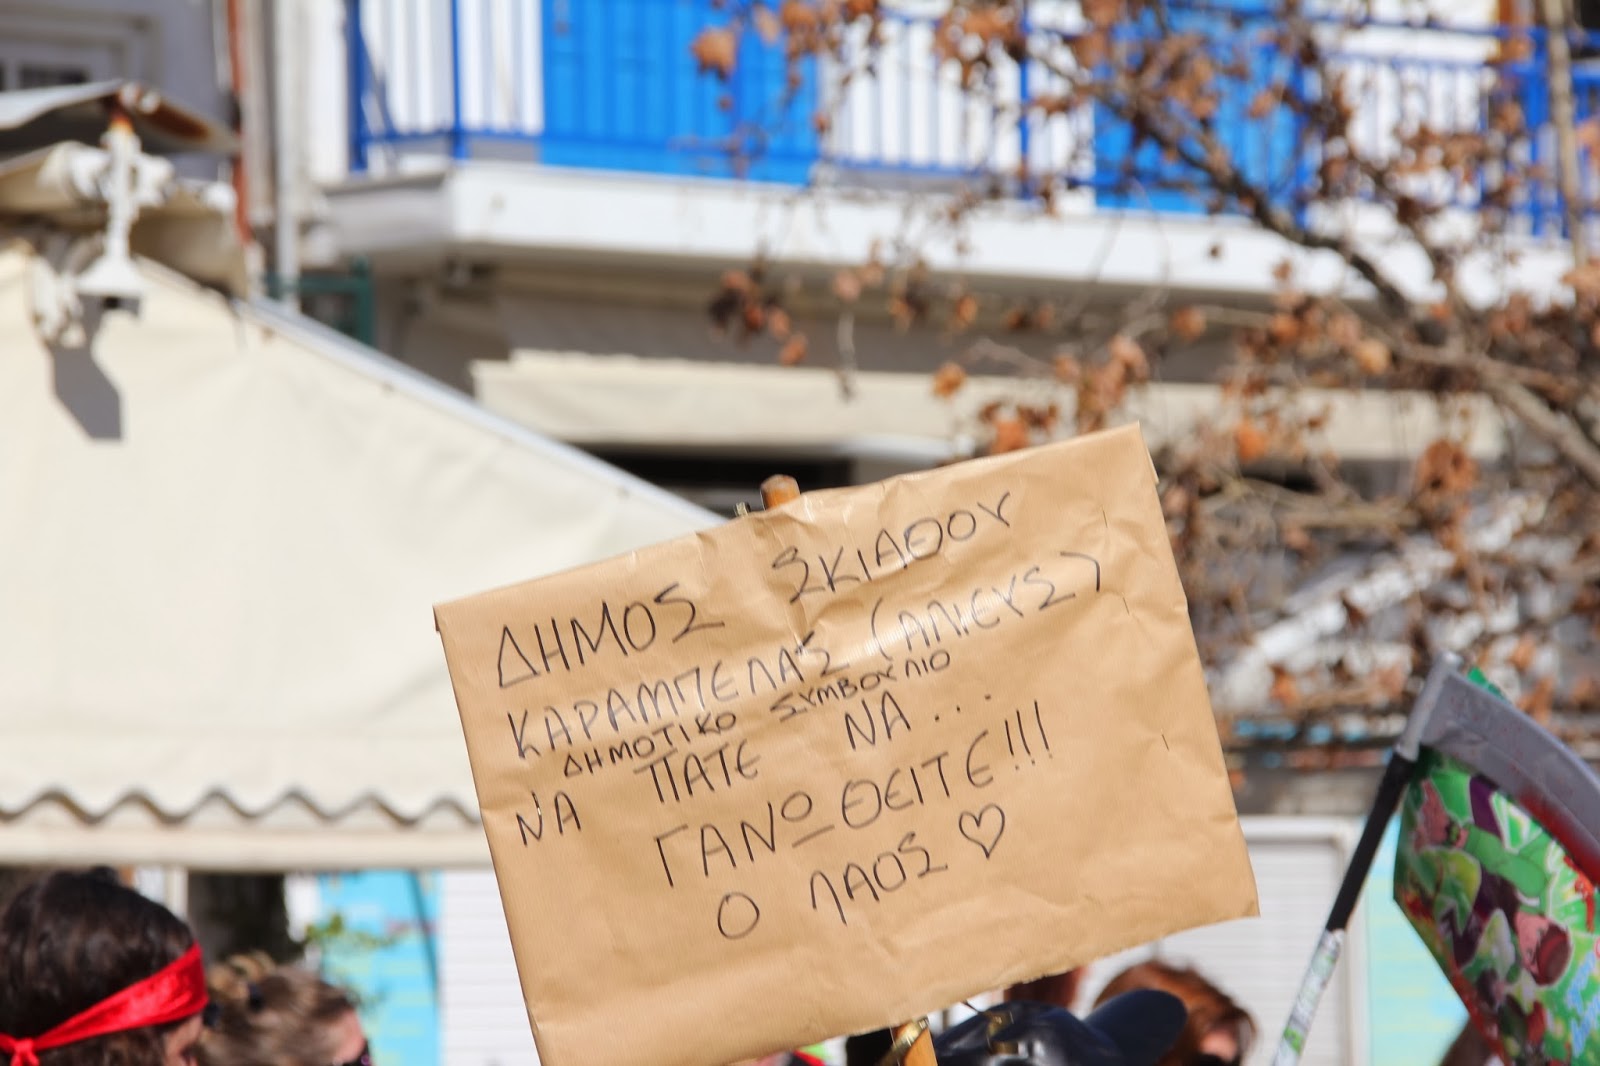 ΔΗΜΟΣ ΣΚΙΑΘΟΥ
ΚΑΡΑΜΠΕΛΑΣ (ΑΛΙΕΥΣ)
ΔΗΜΟΤΙΚΟ ΣΥΜΒΟΥΛΙΟ
ΝΑ ΠΑΤΕ ΝΑ...
ΓΑΝΩΘΕΙΤΕ!!!
Ο ΛΑΟΣ ♡